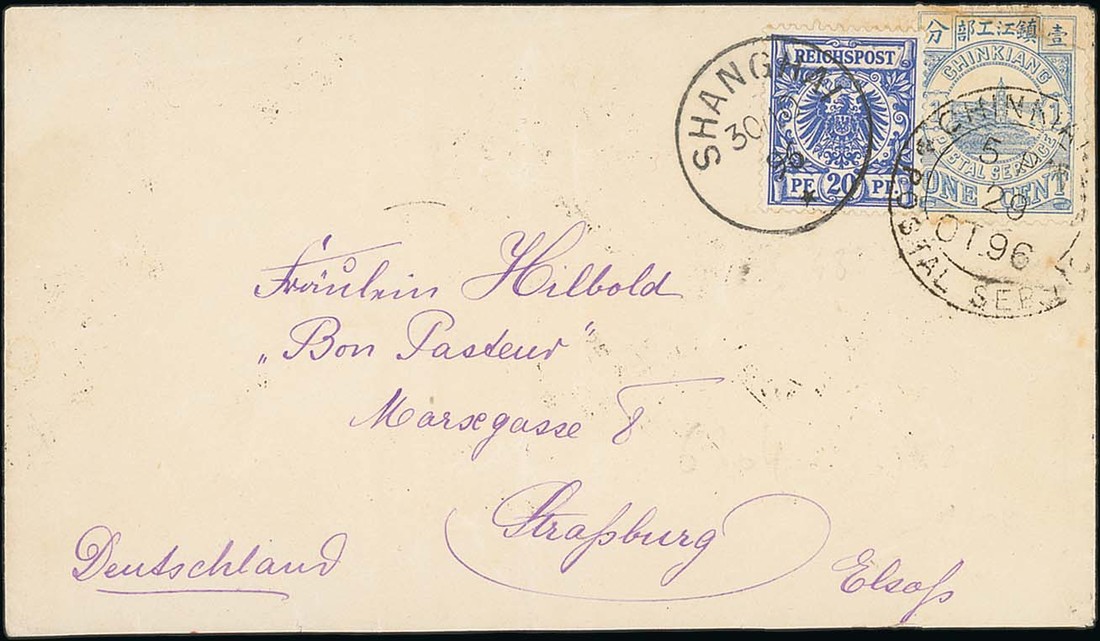 REICHSPOST
PF 20 PF
SHANGHAI
30
96
壹 鎮江工部 分
CHINKIANG
1 1
POSTAL SERVICE
ONE CENT
CHINKIANG
POSTAL SERVICE
5
29
OT.96
Fräulein Hilbold
„Bon Pasteur"
Marxgasse 8
Straßburg
Deutschland
Elsaß